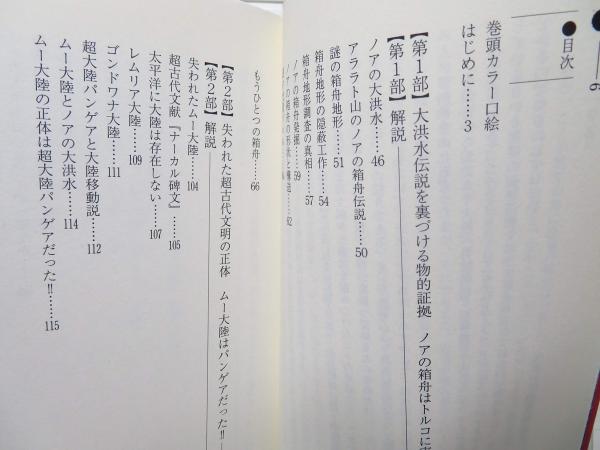 ●目次
巻頭カラー口絵
はじめに……3
【第1部】大洪水伝説を裏づける物的証拠 ノアの箱舟はトルコに
【第1部】解説
ノアの大洪水……46
アララト山のノアの箱舟伝説……50
謎の箱舟地形……51
箱舟地形の隠蔽工作……54
箱舟地形調査の真相……57
ノアの箱舟発掘……59
ノアの箱舟の形状と構造……62
もうひとつの箱舟……66
【第2部】失われた超古代文明の正体 ムー大陸はパンゲアだった!!
【第2部】解説
失われたムー大陸……104
超古代文献『ナーカル碑文』……105
太平洋に大陸は存在しない……107
レムリア大陸……109
ゴンドワナ大陸……111
超大陸パンゲアと大陸移動説……112
ムー大陸とノアの大洪水……114
ムー大陸の正体は超大陸パンゲアだった!!……115